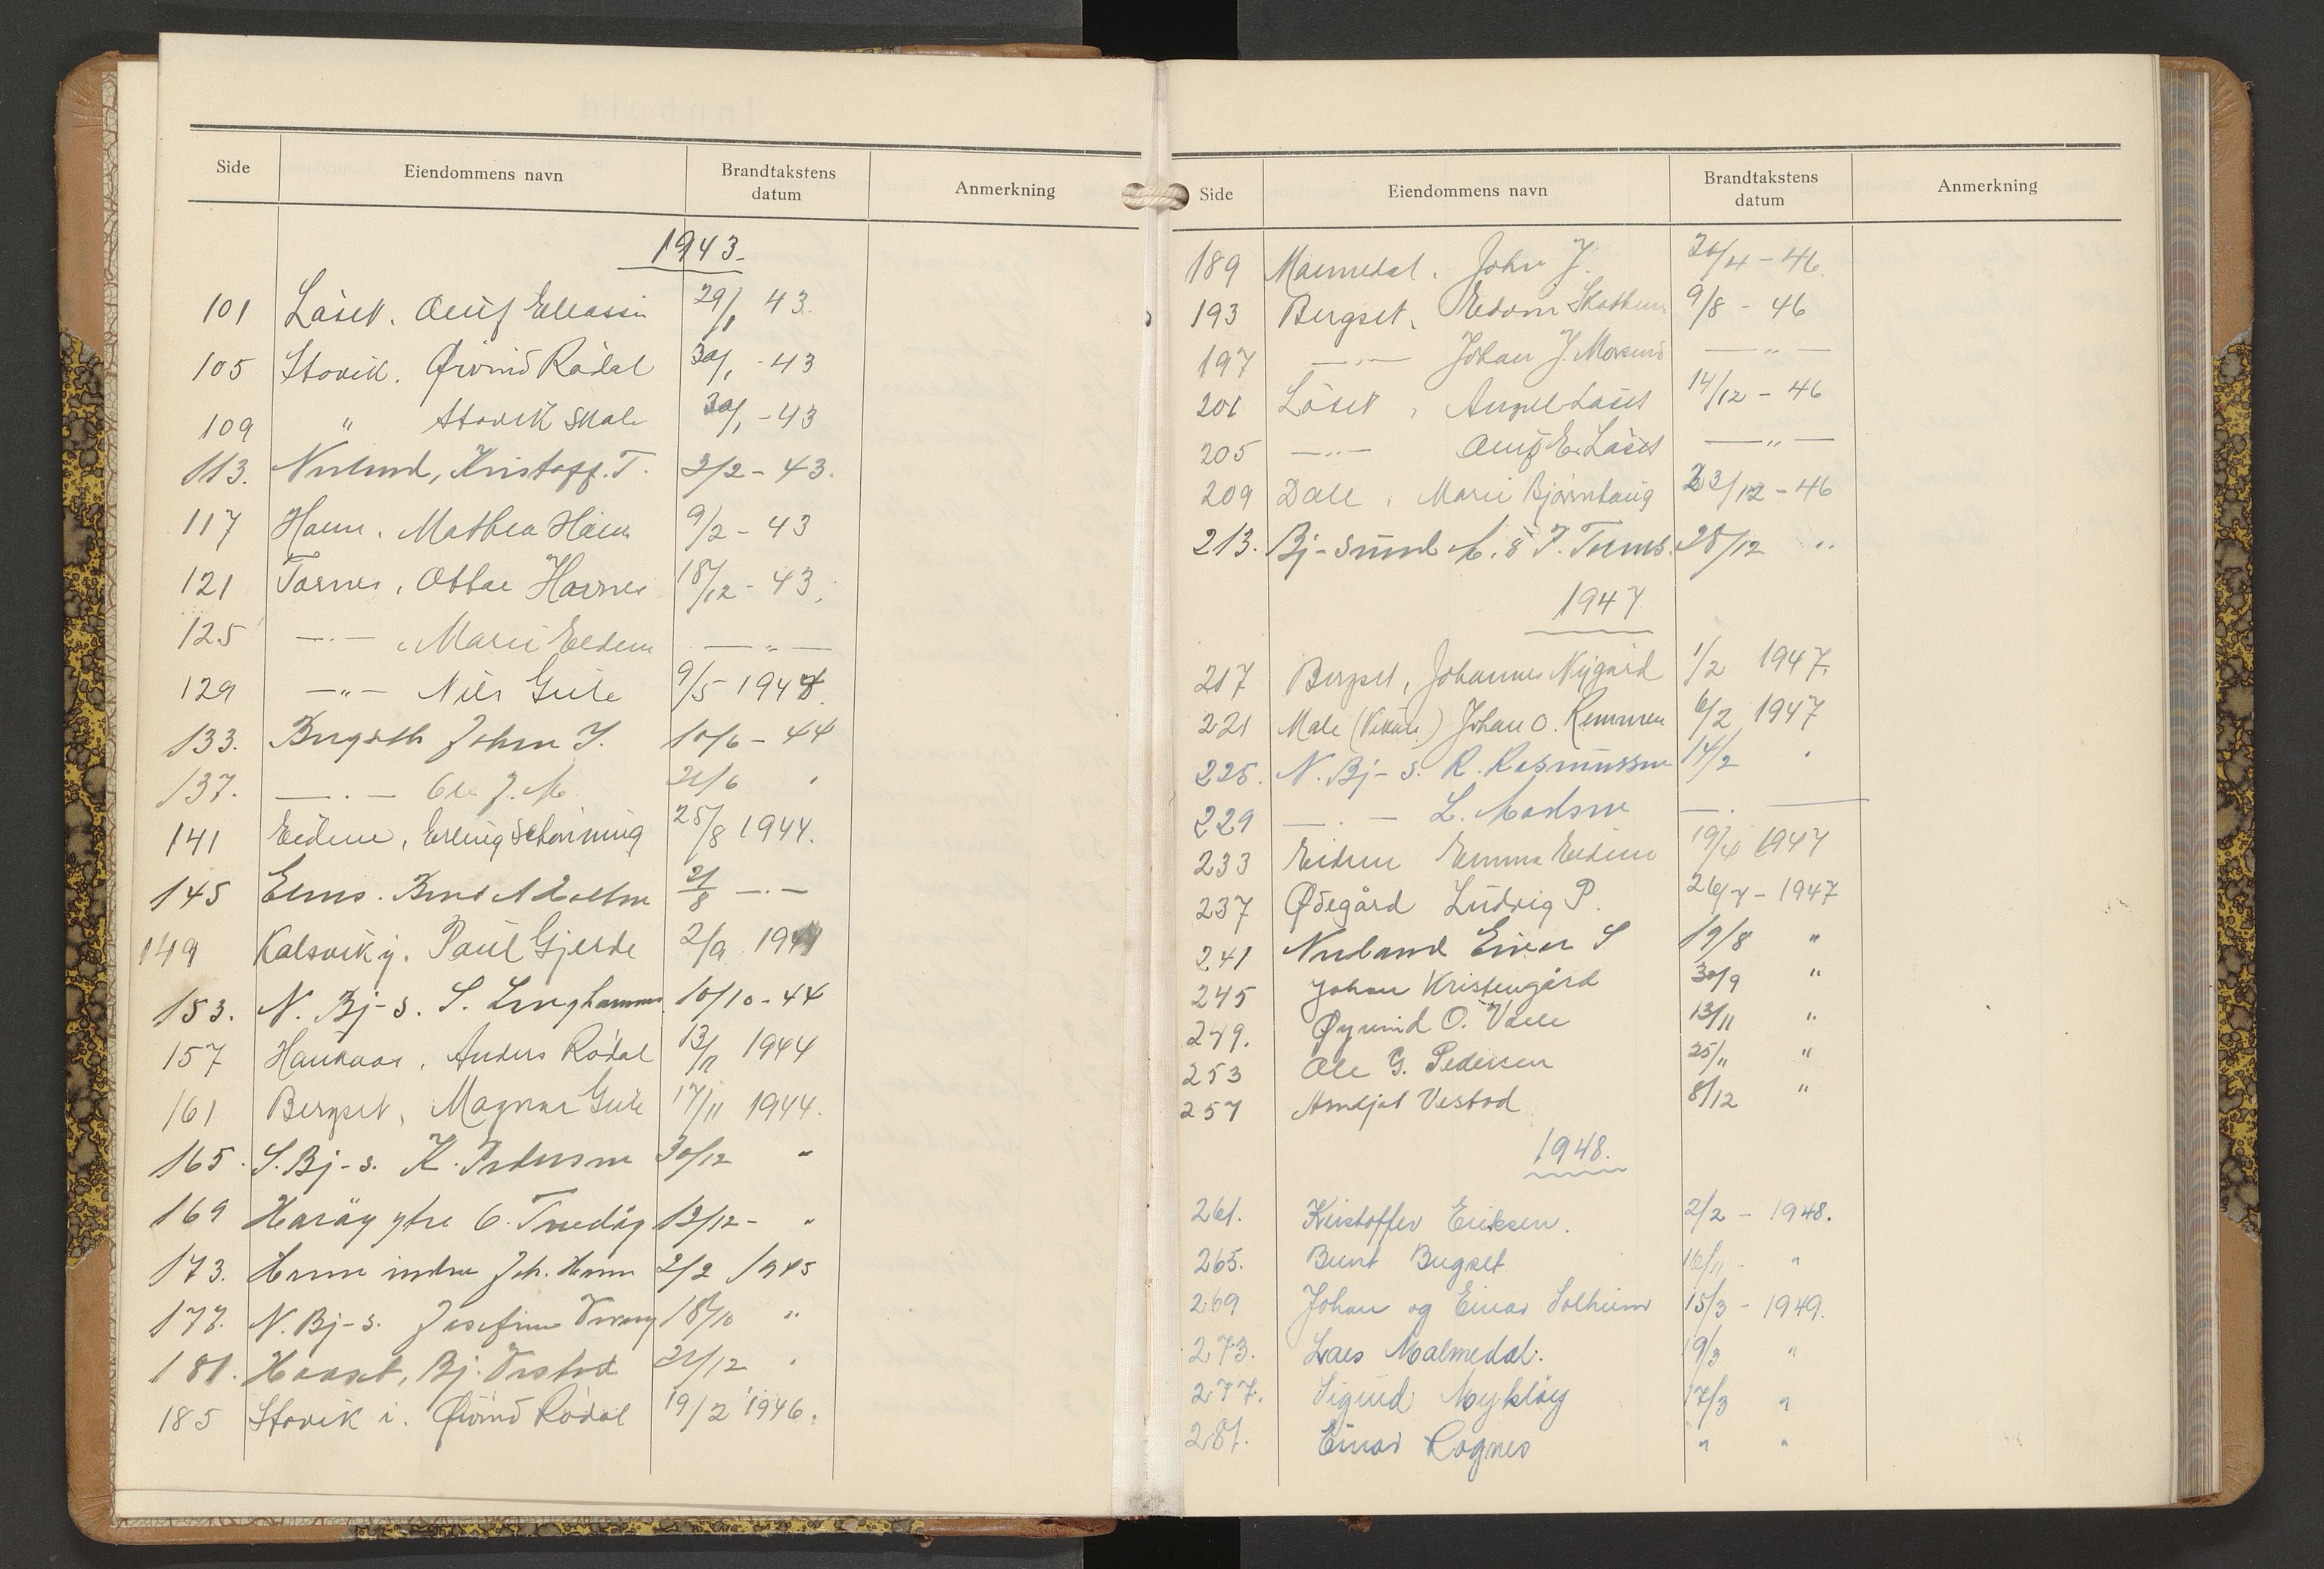 Side Eiendommens navn Brandtakstens datum Anmerkning
1943
101 Låset. Oluf Eliassen 29/1 43.
105 Stavik. Øivind Rødal 30/1 - 43
109 " Stavik skole 30/1 - 43
113. Nerland, Kristoff. T. 3/2 - 43.
117 Haun. Mathea Haun 9/2 - 43
121 Tornes. Ottar Harnes 18/12 - 43.
125 —.— . Marie Eidem — " —
129 —"— Nils Gule 9/5 1944.
133. Bugseth John J. 10/6 - 44
137. —.— Ole J. M. 21/6 "
141 Eidem, Erling Schønning 25/8 1944.
145 Elnes. 21/8 —.—
149 Kalsvik y. Paul Gjerde 2/9 1944
153. N. Bj-s. S. Lynghammer 10/10 - 44
157 Haukaas, Anders Rødal 13/11 1944
161 Bergset, Magnar Gule 17/11 1944.
165. S. Bj-s. K. Pedersen 30/12 "
169 Harøy ytre O. Tredøy 13/12 - "
173. Haun indre Joh. Haun 2/2 1945
177. N. Bj-s. Josefine 18/10 "
181. Hoaset, Bj. Vestad 21/12 "
185 Stavik i. Øivind Rødal 19/2 1946.
Side Eiendommens navn Brandtakstens datum Anmerkning
189 Malmedal. John J. 26/4 - 46.
193 Bergset, Edvin Skotheim 9/8 - 46
197 —.— Johan J. Morsund — " —
201 Låset, Angel Låset 14/12 - 46
205 —..— Oluf E. Låset — " —
209 Dale, Marie Bjørnhaug 23/12 - 46
213. Bj-sund 28/12 "
1947
217 Bergset, Johannes Nygård 1/2 1947.
221 Male (Vikan) Johan O. Remmen 6/2 1947
225. N. Bj-s. R. Rasmussen 14/2 "
229 —.— L. Madsen —.—
233 Eidem Emma Eidem 19/4 1947
237 Ødegård Ludvig P. 26/7 - 1947
241 Nerland Einar S 19/8 "
245 Johan Kristengård 30/9 "
249. Øyvind O. Valle 13/11 "
253 Ole G. Pedersen 25/11 "
257 Arndjot Vestad 8/12 "
1948.
261. Kristoffer Eriksen. 2/2 - 1948.
265. Bernt Bugset 16/11 - "
269 Johan og Einar Solheim 15/3 - 1949.
273. Lars Malmedal. 9/3 "
277. Sigurd Myklöy 17/3 "
281. Einar Rognes " "